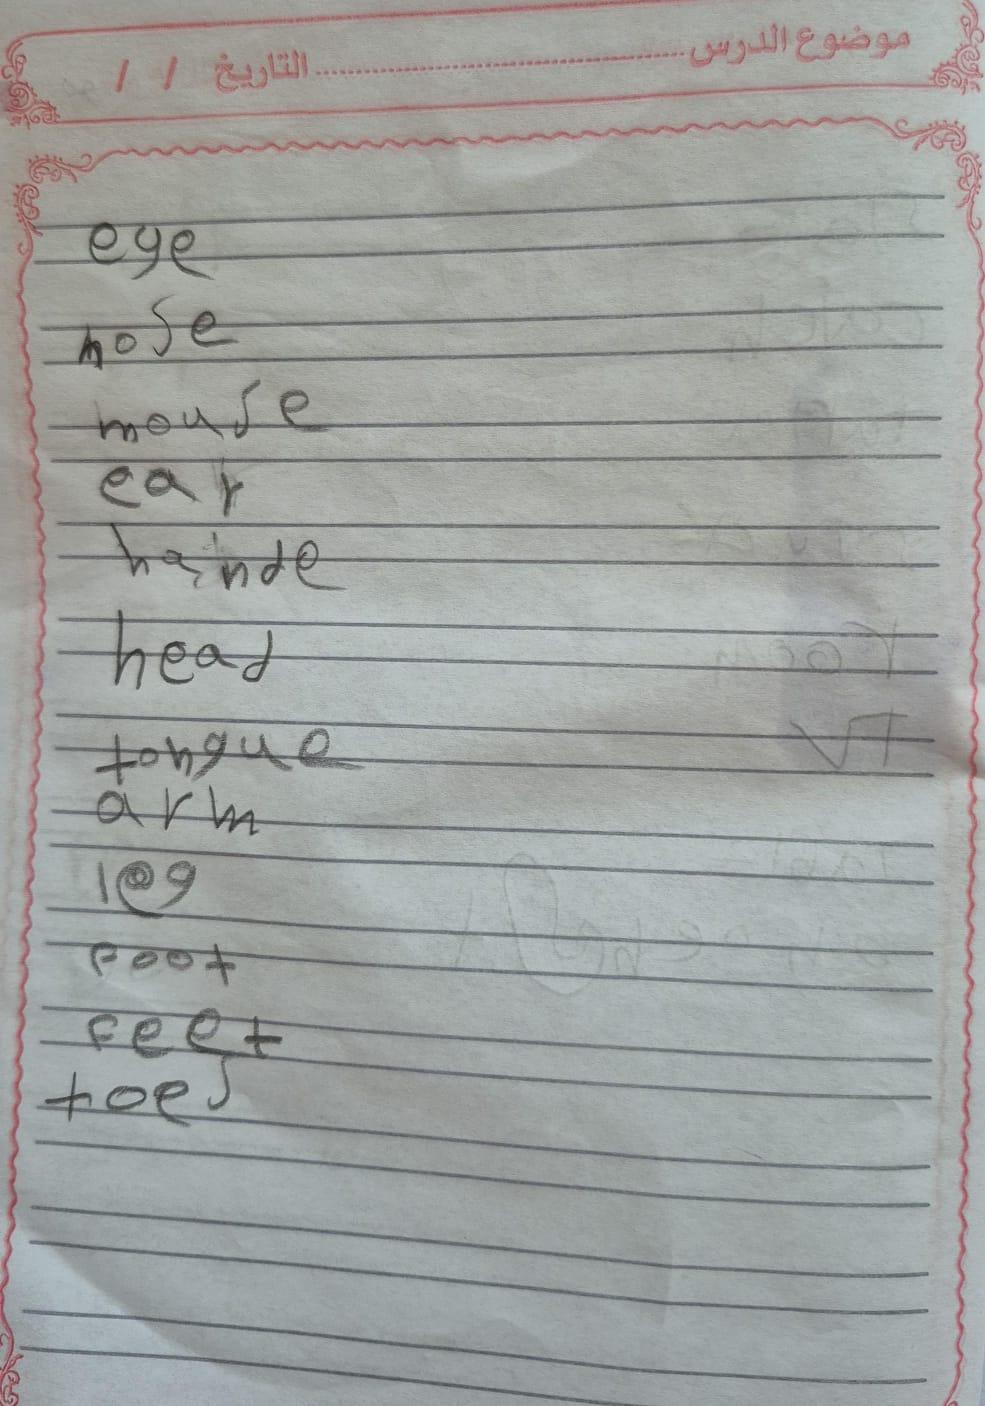 موضوع الدرس ........................ التاريخ / /
eye
nose
mouse
ear
hainde
head
tongue
arm
leg
foot
feet
toes